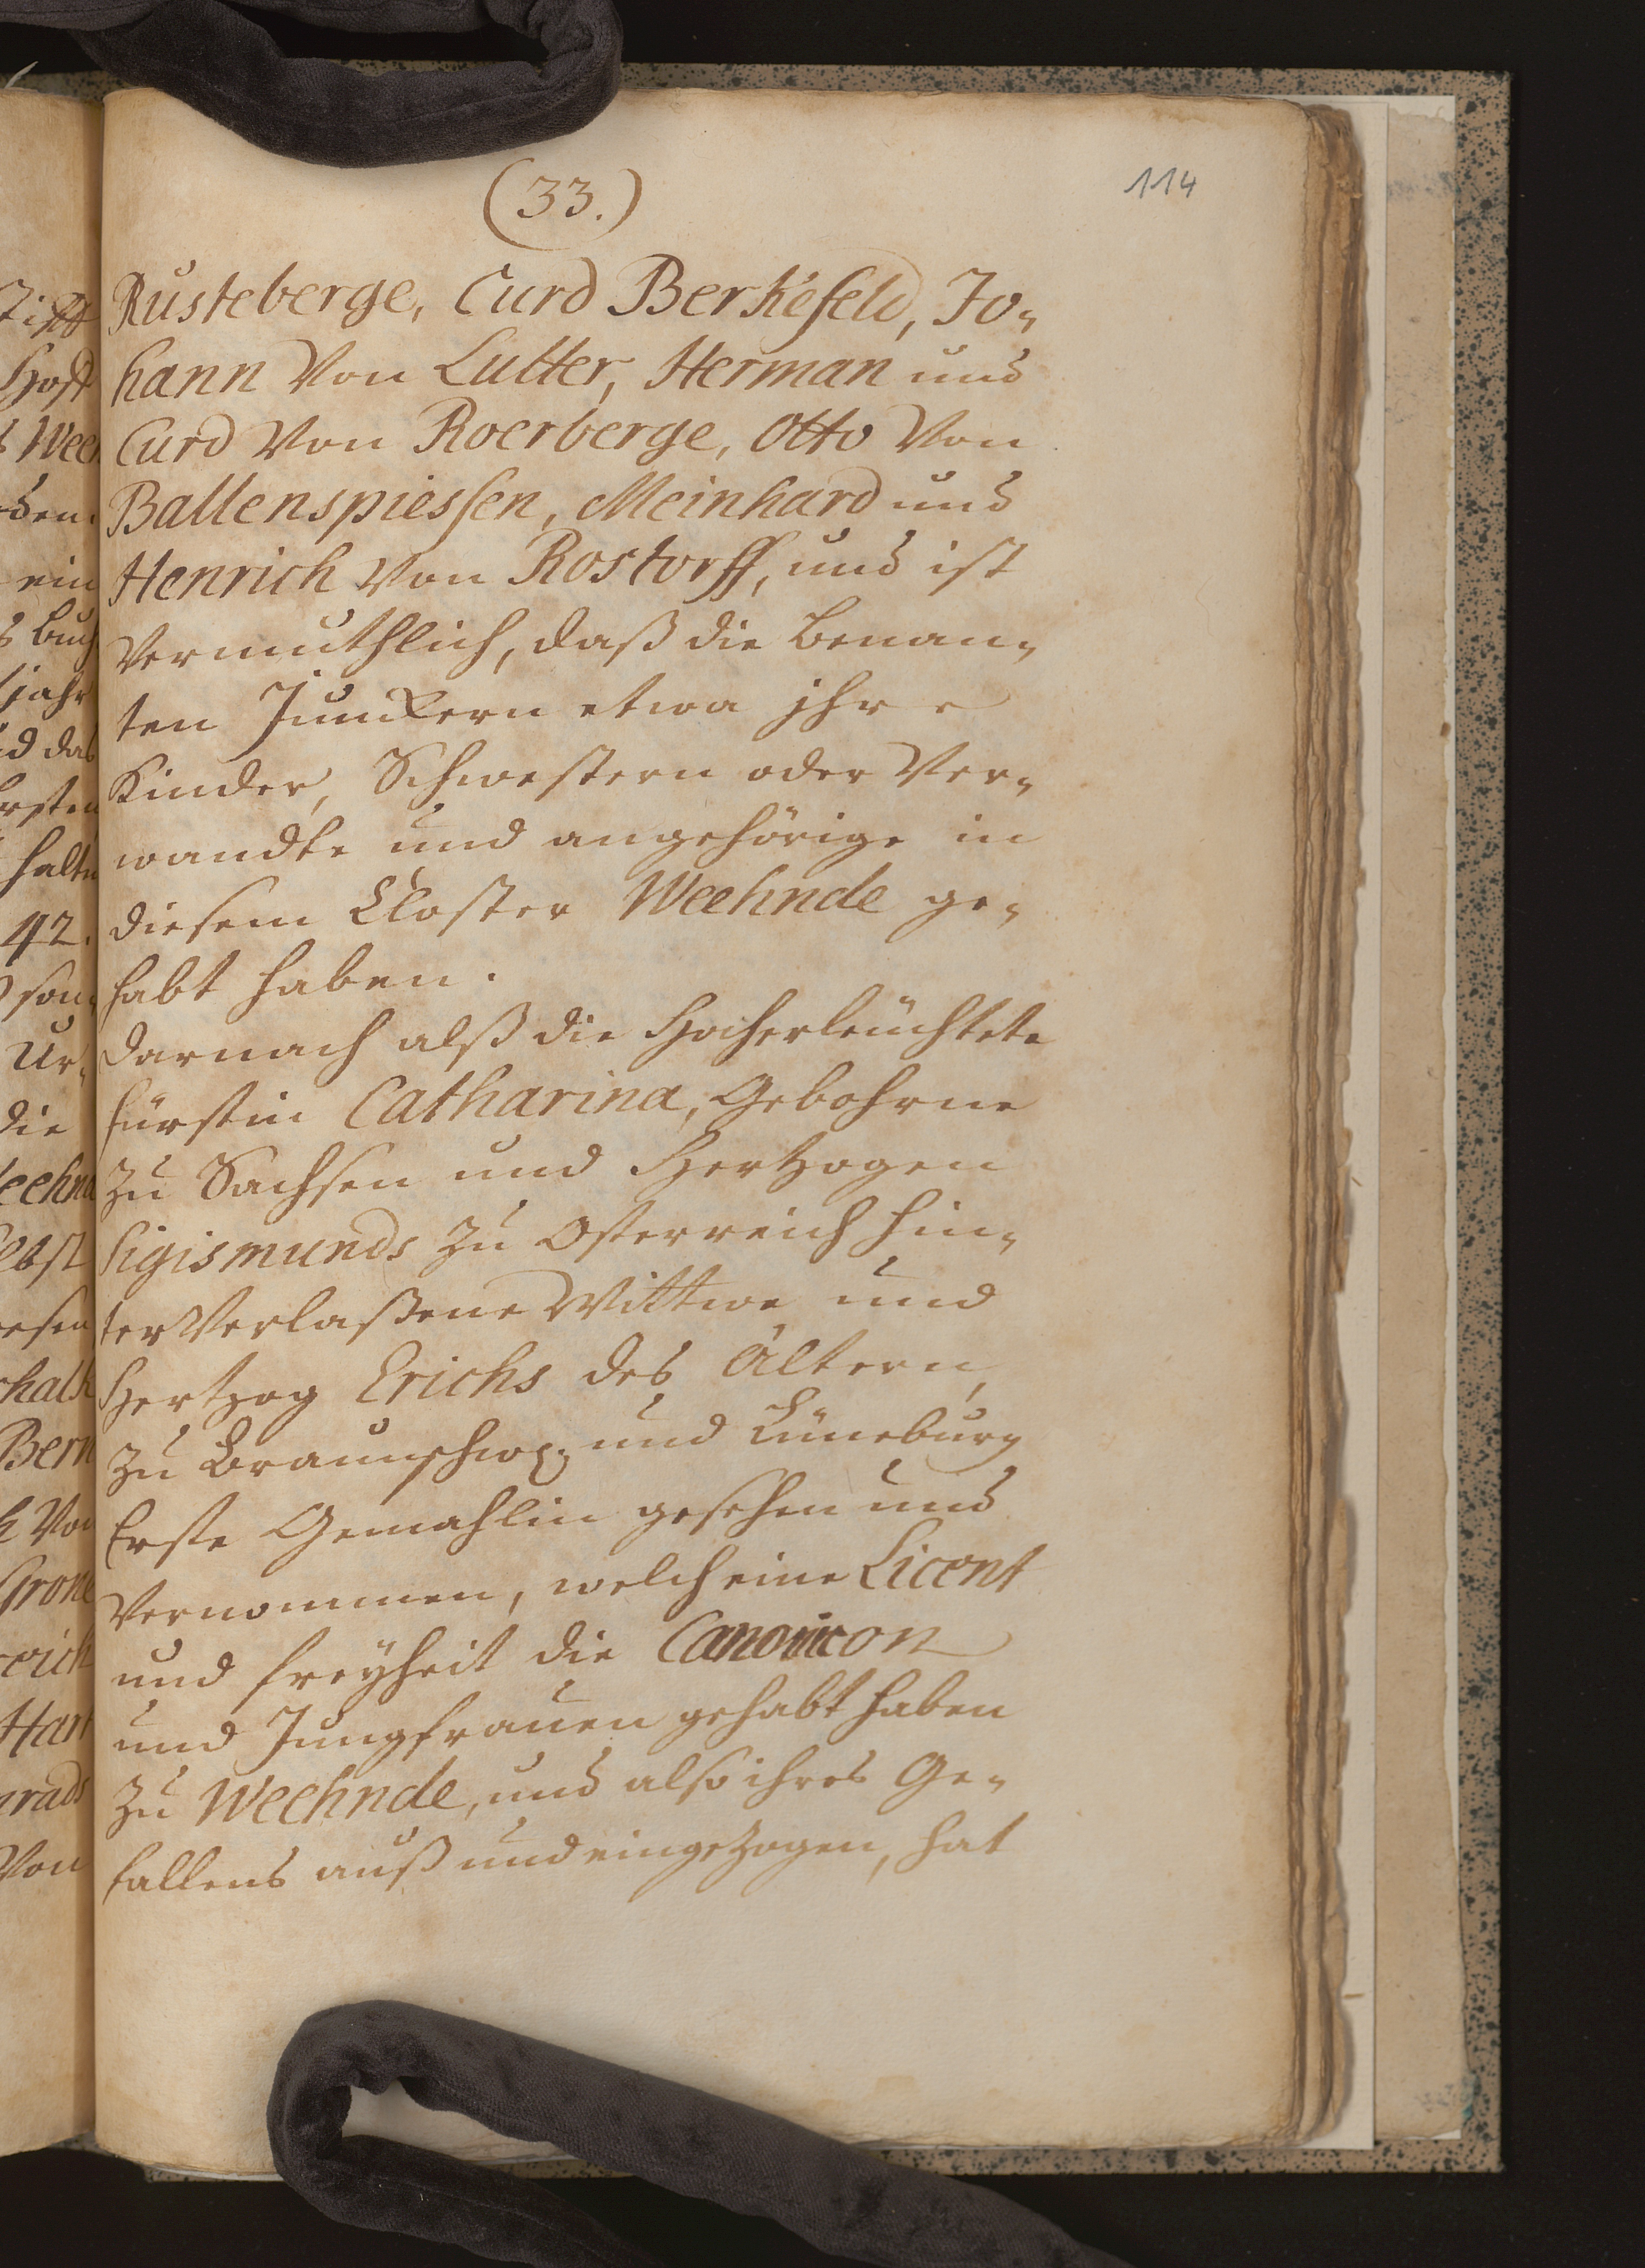 (33.)
114
Rusteberge, Curd Berkefeld, Jo-
hann Von Lutter, Herman und
Curd Von Roerberge, Otto Von
Ballenspiessen, Meinhard und
Henrich Von Rostorff, und ist
Vermuthlich, daß die benan-
ten Junckern etwa jhre
Kinder, Schwestern oder Ver-
wandte und angehörige in
diesem Closter Weehnde ge-
habt haben.
Darnach alß die Hocherleuchtete
fürstin Catharina, Gebohrne
zu Sachsen und Hertzogen
Sigismunds zu Osterreich hin-
terVerlaßene Wittwe und
Hertzog Erichs des Ältern,
zu Braunschw. und Lüneburg
Erste Gemahlin gesehen und
Vernommen, welch eine Licent
und freyheit die Canonicon
und Jungfrauen gehabt haben
zu Weehnde, und also ihres Ge-
fallens auß und eingezogen, hat